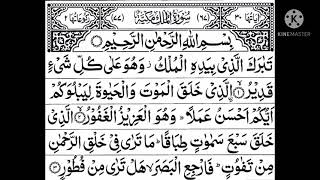 سُوْرَةُ الْمُلْكِ مَكِّيَّةٌ
بِسْمِ اللّٰهِ الرَّحْمٰنِ الرَّحِيْمِ
تَبٰرَكَ الَّذِيْ بِيَدِهِ الْمُلْكُ وَهُوَ عَلٰى كُلِّ شَيْءٍ
قَدِيْرُ الَّذِيْ خَلَقَ الْمَوْتَ وَالْحَيٰوةَ لِيَبْلُوَكُمْ
اَيُّكُمْ اَحْسَنُ عَمَلًا وَهُوَ الْعَزِيْزُ الْغَفُوْرُ الَّذِيْ
خَلَقَ سَبْعَ سَمٰوٰتٍ طِبَاقًا مَا تَرٰى فِيْ خَلْقِ الرَّحْمٰنِ
مِنْ تَفٰوُتٍ فَارْجِعِ الْبَصَرَ هَلْ تَرٰى مِنْ فُطُوْرٍ
KINEMASTER